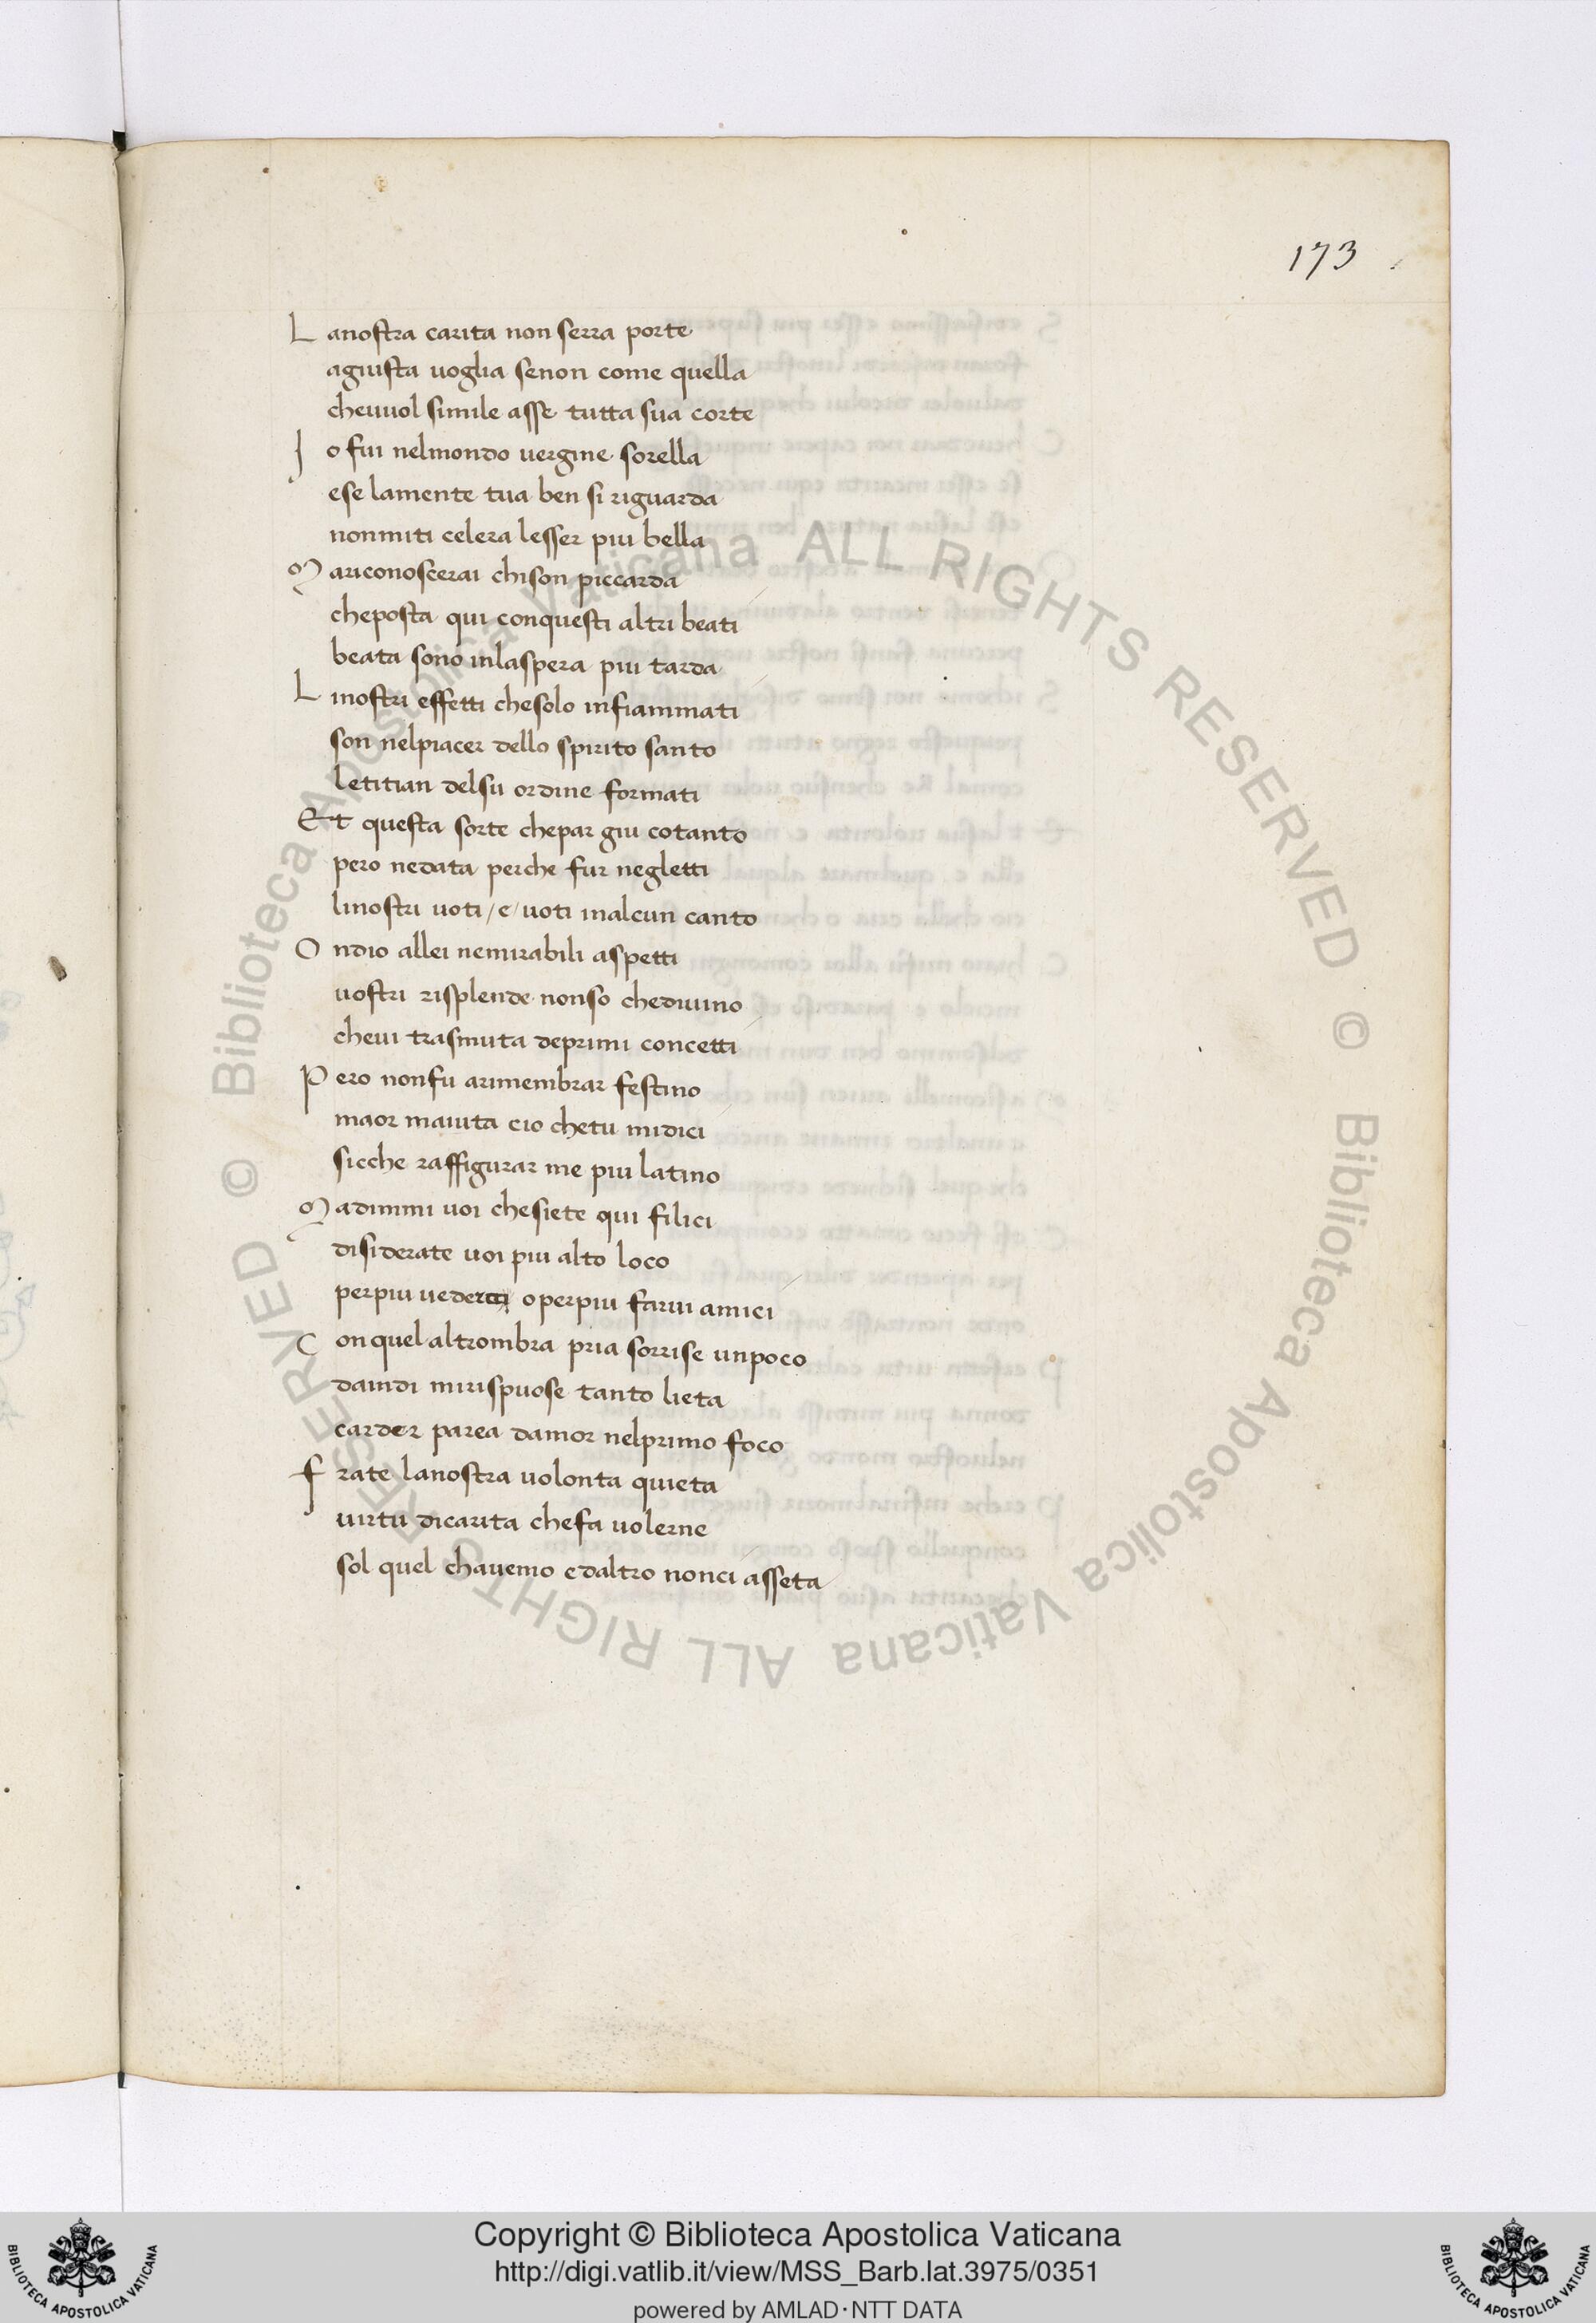 173
L anostra carita non serra porte
agiusta uoglia senon come quella
cheuuol simile asse tutta sua corte
J o fui nelmondo uergine sorella
ese lamente tua ben si riguarda
nonmiti celera lesser piu bella
M ariconoscerai chison piccarda
cheposta qui conquesti altri beati
beata sono inlaspera piu tarda
L inostri effetti chesolo infiammati
son nelpiacer dello spirito santo
letitian delsu ordine formati
Et questa sorte chepar giu cotanto
pero nedata perche fur negletti
linostri uoti / e / uoti inalcun canto
O ndio allei nemirabili aspetti
uostri risplende nonso chediuino
cheui trasmuta deprimi concetti
P ero nonfu arimembrar festino
maor maiuta cio chetu midici
sicche raffigurar me piu latino
M adimmi uoi chesiete qui filici
disiderate uoi piu alto loco
perpiu uedere operpiu farui amici
C on quel altrombra pria sorrise unpoco
daindi mirispuose tanto lieta
carder parea damor nelprimo foco
f rate lanostra uolonta quieta
uirtu dicarita chefa uolerne
sol quel chauemo edaltro nonci asseta
© Biblioteca Apostolica Vaticana ALL RIGHTS RESERVED © Biblioteca Apostolica Vaticana ALL RIGHTS RESERVED
Copyright © Biblioteca Apostolica Vaticana
http://digi.vatlib.it/view/MSS_Barb.lat.3975/0351
powered by AMLAD·NTT DATA
BIBLIOTECA APOSTOLICA VATICANA
BIBLIOTECA APOSTOLICA VATICANA